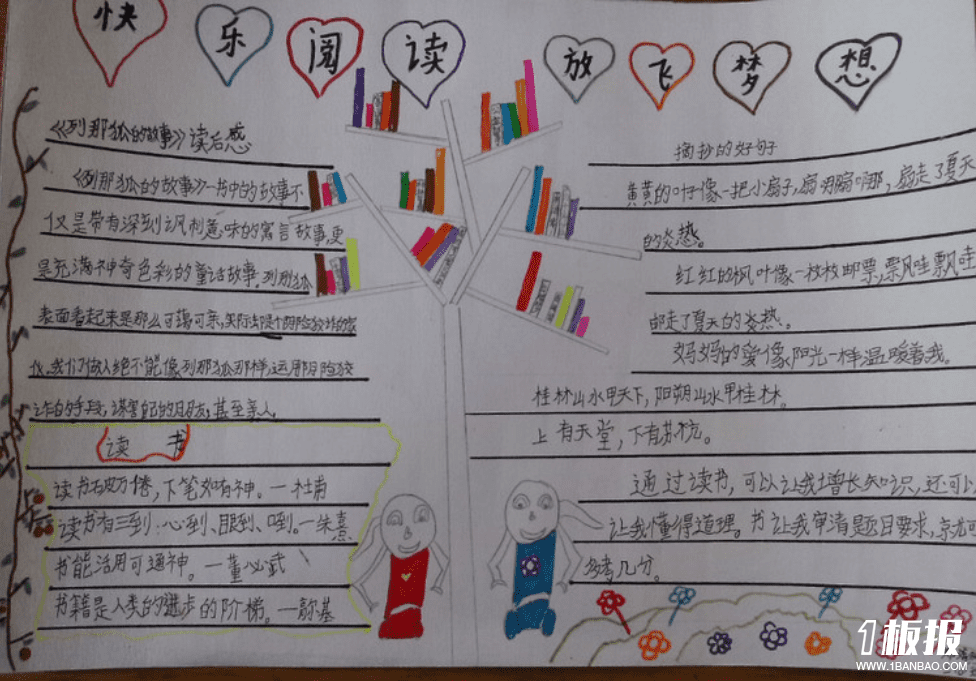 快乐阅读 放飞梦想
《列那狐的故事》读后感
《列那狐的故事》一书中的故事不
仅是带有深刻讽刺意味的寓言故事,更
是充满神奇色彩的童话故事,列那狐
表面看起来是那么可蔼可亲,实际却是个阴险狡诈的家
伙,我们做人绝不能像列那狐那样,运用阴险狡
诈的手段,谋害自己的朋友,甚至亲人。
读书
读书破万倦,下笔如有神。—杜甫
读书有三到:心到、眼到、口到。—朱熹
书能活用可通神。—董必武
书籍是人类的进步的阶梯。—高尔基
摘抄的好句子
黄黄的叶像一把小扇子,扇哪扇哪,扇走了夏天
的炎热。
红红的枫叶像一枚枚邮票,飘哇飘哇
邮走了夏天的炎热。
妈妈的爱像阳光一样温暖着我。
桂林山水甲天下,阳朔山水甲桂林。
上有天堂,下有苏杭。
通过读书,可以让我增长知识,还可以
让我懂得道理。书让我审清题目要求,
多考几分。
1板报
WWW.1BANBAO.COM